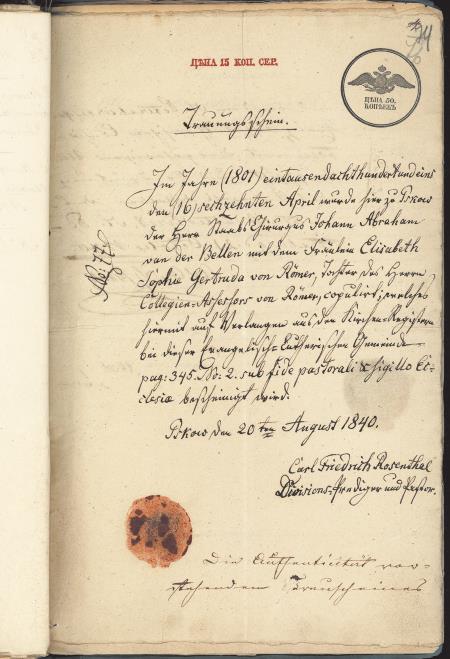 ЦѢНА 15 КОП. СЕР.
ЦѢНА 50.
КОПѢЕКЪ
Trauungsschein.
Im Jahre (1801) eintausendachthundertundeins
den (16) sechzehnten April wurde hier zu Pskow
der Herr Staabs Chirurgus Johann Abraham
van der Bellen mit dem Fräulein Elisabeth
Sophia Gertruda von Römer, Tochter des Herrn
Collegien-Assessors von Römer, copulirt; welches
hiermit auf Verlangen aus den Kirchen-Registern
bei dieser Evangelisch-Lutherischen Gemeinde
pag: 345. No: 2. sub fide pastorali & sigillo Ec-
clesiæ bescheinigt wird.
Pskow den 20ten August 1840.
Carl Friedrich Rosenthal
Divisions-Prediger und Pastor.
No: 77.
Die Authenticität vor-
stehenden Trauscheines